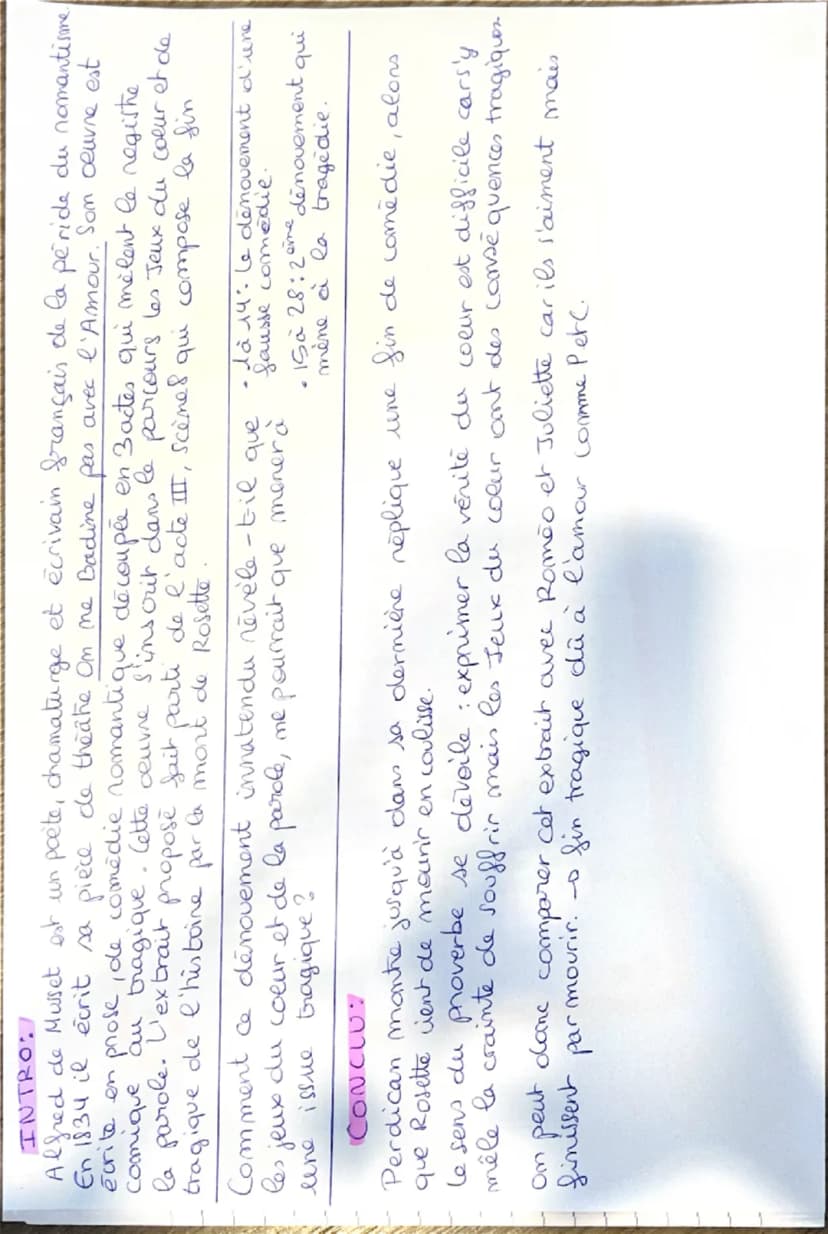 INTRO:
Alfred de Musset est un poète, dramaturge et écrivain français de la péride du romantisme.
En 1834 il écrit sa pièce de théâtre On ne Badine pas avec l'Amour. Son œuvre est
écrite en prose, de comédie romantique découpée en 3 actes qui mêlent le registre
comique au tragique. Cette œuvre s'inscrit dans le parcours les Jeux du cœur et de
la parole. L'extrait proposé fait parti de l'acte III, scène 8 qui compose la fin
tragique de l'histoire par la mort de Rosette.
Comment ce dénouement innatendu révèle-t-il que
les jeux du cœur et de la parole, ne pourrait que mener à
une issue tragique?
• 1 à 14: Le dénouement d'une
fausse comédie.
• 15 à 28: 2ème dénouement qui
mène à la tragédie.
CONCLU:
Perdican montre jusqu'à dans sa dernière réplique une fin de comédie, alors
que Rosette vient de mourir en coulisse.
Le sens du proverbe se dévoile: exprimer la vérité du cœur est difficile car s'y
mêle la crainte de souffrir mais les Jeux du cœur ont des conséquences tragiques
On peut donc comparer cet extrait avec Roméo et Juliette car ils s'aiment mais
finissent par mourir. → fin tragique dû à l'amour comme P et C.